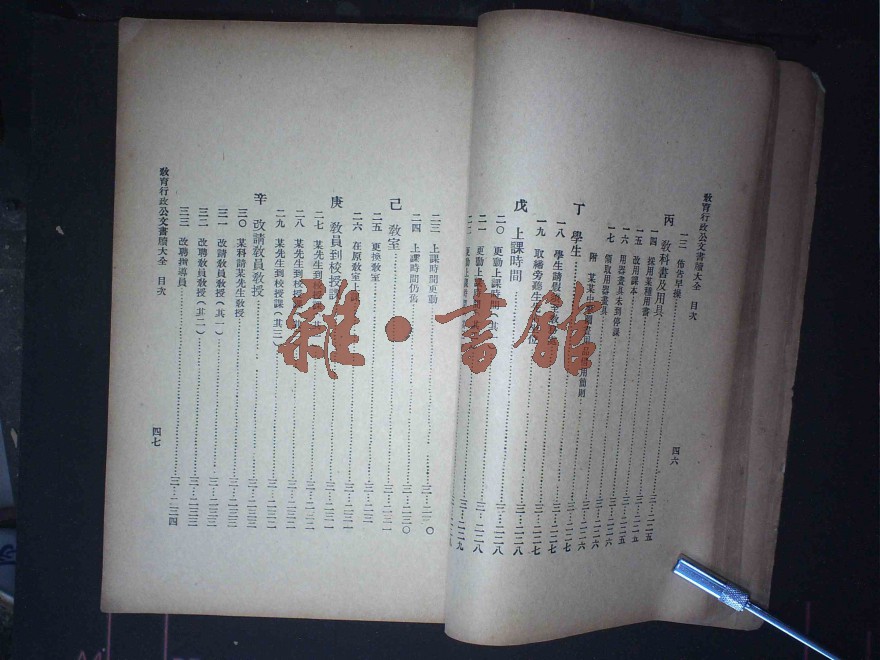 教育行政公文書牘大全 目次
四六
一三 佈告早操
丙 教科書及用具 三…二二五
一四 採用某種用書 三…二二五
一五 改用課本 三…二二五
一六 用器畫具未到停課 三…二二六
一七 領取用器畫具 三…二二六
附 某某
丁 學生 三…二二七
一八 學生請 三…二二七
一九 取締旁聽生 三…二二七
戊 上課時間 三…二二八
二〇 更動上課時間（其一） 三…二二八
二一 更動上課時 三…二二八
二二 更動上課
二三 上課時間更動
二四 上課時間仍舊 三…二三〇
己 教室
二五 更換教室
二六 在原教室上課
庚 教員到校授課
二七 某先生到校授課
二八 某先生到校授課
二九 某先生到校授課（其三）
辛 改請教員教授 三…二三三
三〇 某科請某先生教授 三…二三三
三一 改請教員教授（其一） 三…二三三
三二 改聘教員教授（其二） 三…二三三
三三 改聘指導員 三…二三四
教育行政公文書牘大全 目次
四七
雜·書館